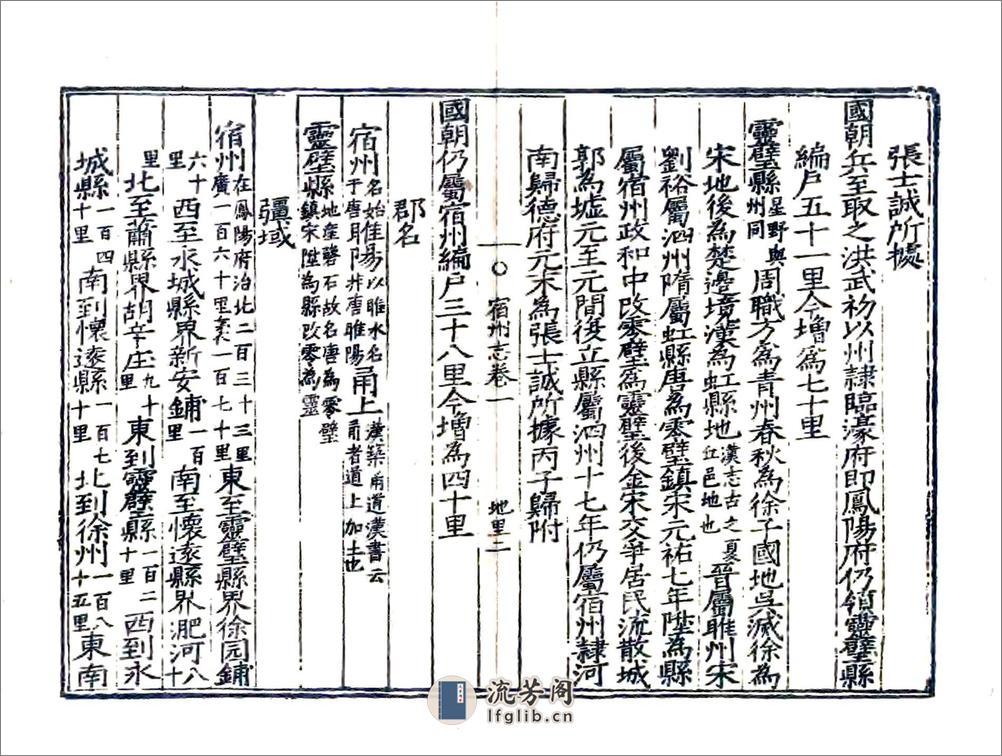 張士誠所㩀
國朝兵至取之洪武初以州隸臨濠府即鳳陽府仍領靈璧縣
編戶五十一里今增爲七十里
靈璧縣星野與州同周職方爲青州春秋爲徐子國地吳滅徐爲
宋地後爲楚邊境漢爲虹縣地漢志古之夏丘邑地也晉屬睢州宋
劉裕屬泗州隋屬虹縣唐爲零璧鎮宋元祐七年陞爲縣
屬宿州政和中改零璧爲靈璧後金宋交爭居民流散城
郭爲墟元至元間復立縣屬泗州十七年仍屬宿州隸河
南歸德府元末爲張士誠所據丙子歸附
宿州志卷一 地里二
國朝仍屬宿州編戶三十八里今增爲四十里
郡名
宿州名始於唐睢陽以睢水名耳非唐睢陽甬上漢築甬道漢書云甬者道上加土也
靈璧縣地產磬石故名唐爲零璧鎮宋陞爲縣改零爲靈
疆域
宿州在鳳陽府治北二百三十三里廣一百六十里袤一百七十里東至靈璧縣界徐园鋪
六十里西至永城縣界新安鋪一百里南至懷遠縣界淝河八十
里北至蕭縣界胡辛庄九十里東到靈璧縣一百二十里西到永
城縣一百四十里南到懷遠縣一百七十里北到徐州一百八十五里東南
流芳阁
lfglib.cn